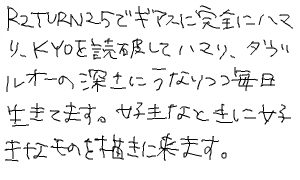 R2TURN25でギアスに完全にハマ
り、KYOを読破してハマり、ダブ
ルオーの深さにうなりつつ毎日
生きてます。好きなときに好
きなものを描きに来ます。